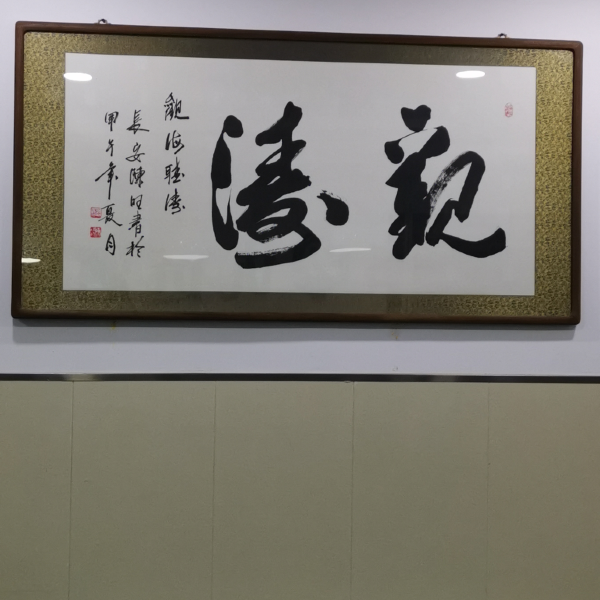 觀濤
觀海聽濤
長安陳明書於
甲午年夏月